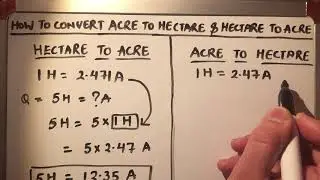 HOW TO CONVERT ACRE TO HECTARE & HECTARE TO ACRE
HECTARE TO ACRE
1H = 2.471A
Q = 5H = ?A
5H = 5 × 1H
= 5 × 2.47 A
5H = 12.35 A
ACRE TO HECTARE
1H = 2.47A